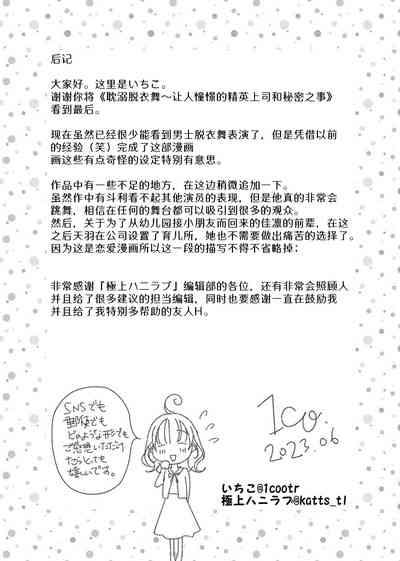 后记
大家好。这里是いちこ。
谢谢你将《耽溺脱衣舞～让人憧憬的精英上司和秘密之事》
看到最后。
现在虽然已经很少能看到男士脱衣舞表演了，但是凭借以前
的经验（笑）完成了这部漫画
画这些有点奇怪的设定特别有意思。
作品中有一些不足的地方，在这边稍微追加一下。
虽然作中有斗利看不起其他演员的表现，但是他真的非常会
跳舞，相信在任何的舞台都可以吸引到很多的观众。
然后，关于为了从幼儿园接小朋友而回来的佳凛的前辈，在这
之后天羽在公司设置了育儿所，她也不需要做出痛苦的选择了。
因为这是恋爱漫画所以这一段的描写不得不省略掉：
非常感谢『極上ハニラブ』编辑部的各位，还有非常会照顾人
并且给了很多建议的担当编辑，同时也要感谢一直在鼓励我
并且给了我特别多帮助的友人H。
SNSでも
郵便でも
どのような形でも
ご感想いただけ
たらとっても
嬉しいです。
1co
2023.06
いちこ@1cootr
極上ハニラブ@katts_tl